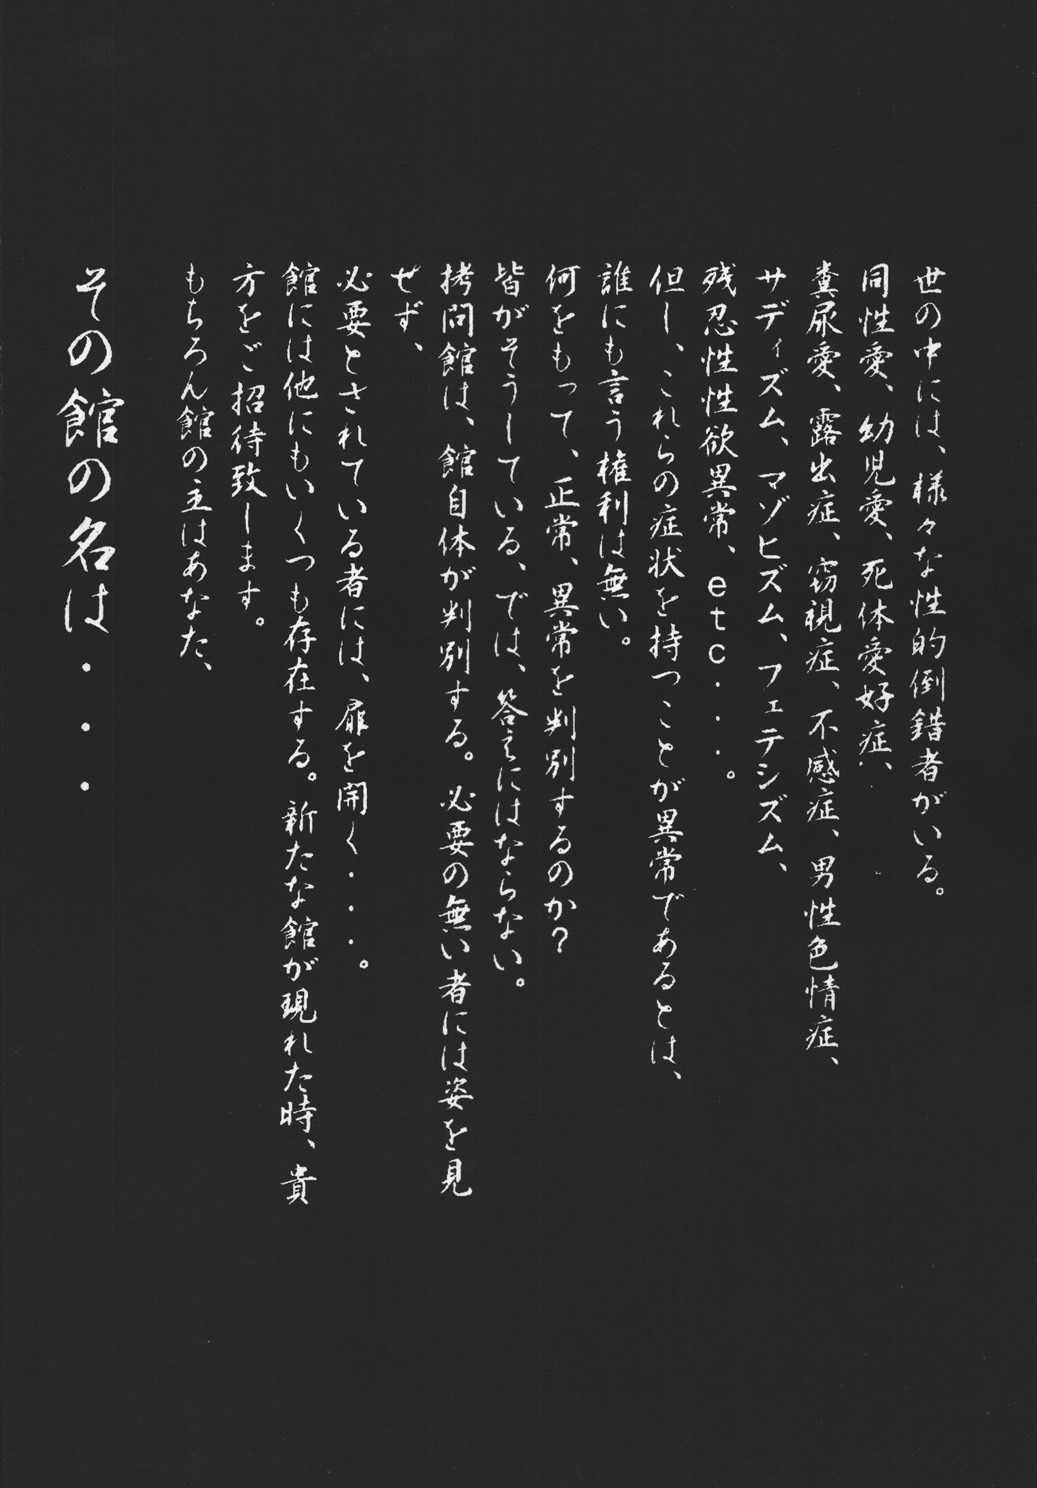 世の中には、様々な性的倒錯者がいる。
同性愛、幼児愛、死体愛好症、
糞尿愛、露出症、窃視症、不感症、男性色情症、
サディズム、マゾヒズム、フェテシズム、
残忍性性欲異常、etc・・・。
但し、これらの症状を持つことが異常であるとは、
誰にも言う権利は無い。
何をもって、正常、異常を判別するのか？
皆がそうしている、では、答えにはならない。
拷問館は、館自体が判別する。必要の無い者には姿を見
せず、
必要とされている者には、扉を開く・・・。
館には他にもいくつも存在する。新たな館が現れた時、貴
方をご招待致します。
もちろん館の主はあなた、
その館の名は・・・